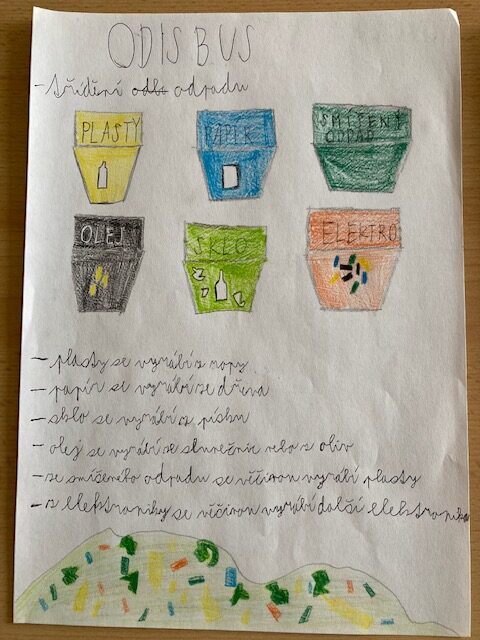 ODISBUS
- třídění odb odpadu
PLASTY
PAPÍR
SMÍŠENÝ
ODPAD
OLEJ
SKLO
ELEKTRO
- plasty se vyrábí z ropy
- papír se vyrábí ze dřeva
- sklo se vyrábí z písku
- olej se vyrábí ze slunečnic nebo z oliv
- ze smíšeného odpadu se věčinou vyrábí plasty
- z elektroniky se věčinou vyrábí další elektronika